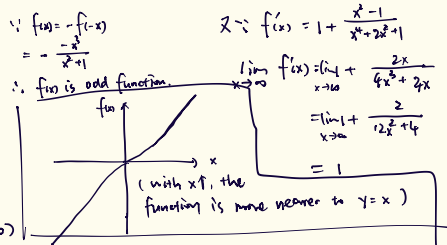 ∵ f(x) = -f(-x)
= - \frac{-x^3}{x^2+1}
∴ f(x) is odd function.
f(x)
x
(with x↑, the
function is more nearer to y=x)
b)
又∵ f'(x) = 1 + \frac{x^2-1}{x^4+2x^2+1}
\lim_{x→∞} f'(x) = \lim_{x→∞} 1 + \frac{2x}{4x^3+4x}
= \lim_{x→∞} 1 + \frac{2}{12x^2+4}
= 1